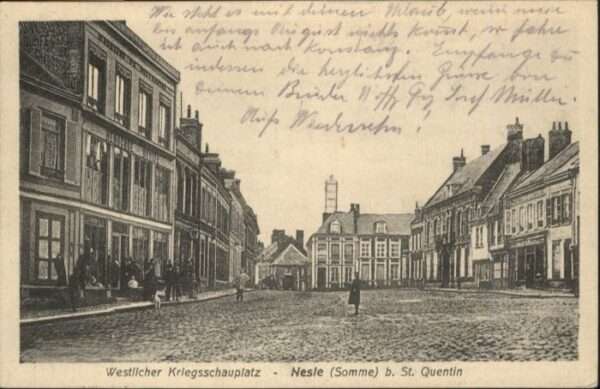 Wie steht es mit deinem Urlaub, wenn neue
bis anfangs August nichts kommt, so fahre
ich auch nach Konstanz. Empfange zu
indessen die herzlichsten Grüsse von
deinem Bruder Uoffz Josef Müller.
Auf's Wiedersehn!
Westlicher Kriegsschauplatz - Nesle (Somme) b. St. Quentin